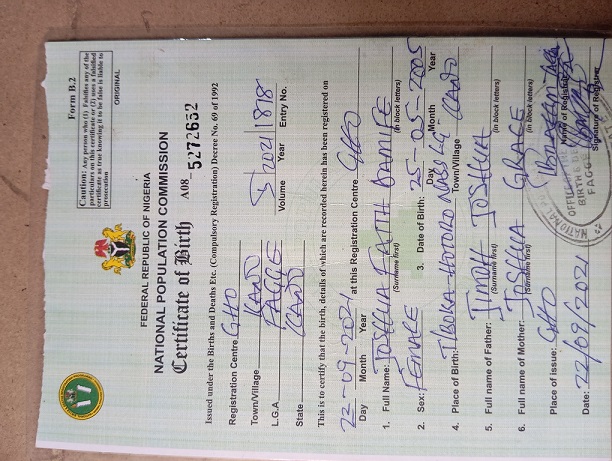 Form B.2
Caution: Any person who (1) Falsifies any of the
particulars on this certificate or (2) uses a falsified
certificate as true knowing it to be false is liable to
prosecution
ORIGINAL
FEDERAL REPUBLIC OF NIGERIA
NATIONAL POPULATION COMMISSION
Certificate of Birth A08 5272632
Issued under the Births and Deaths Etc. (Compulsory Registration) Decree No. 69 of 1992
Registration Centre GHO
Town/Village KANO
L.G.A FAGGE
State KANO
5 2021 1818
Volume Year Entry No.
This is to certify that the birth, details of which are recorded herein has been registered on
22-09-2021 at this Registration Centre GHO
Day Month Year
1. Full Name: JOSHUA FAITH DAMIFE
(Surname first) (in block letters)
2. Sex: FEMALE 3. Date of Birth: 25-05-2005
Day Month Year
4. Place of Birth: HOTORO NASS KANO
Town/Village
5. Full name of Father: JIMOH JOSHUA
(Surname first) (in block letters)
6. Full name of Mother: JOSHUA GRACE
(Surname first) (in block letters)
Place of issue: GHO
Name of Registrar
Date: 22/09/2021
Signature of Registrar
BIRTH &
FAGGE